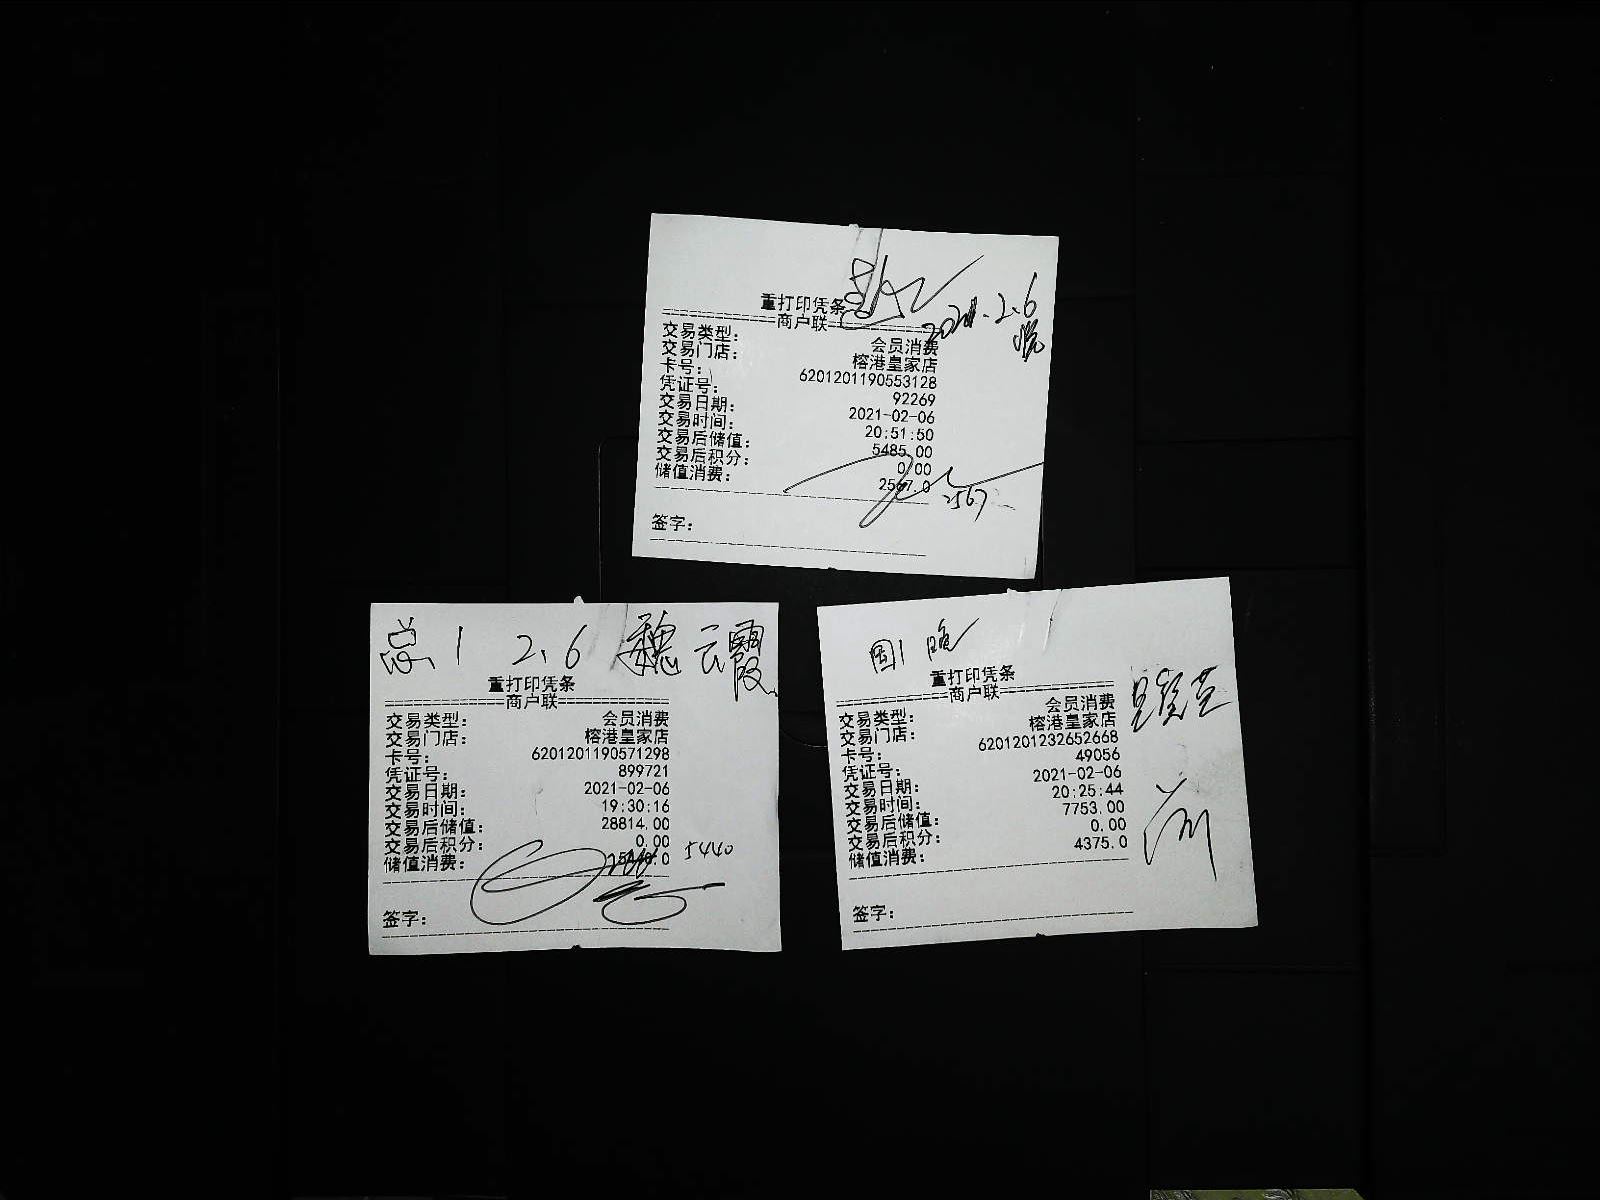 2021.2.6
重打印凭条
商户联
交易类型: 会员消费
交易门店: 榕港皇家店
卡号: 6201201190553128
凭证号: 92269
交易日期: 2021-02-06
交易时间: 20:51:50
交易后储值: 5485.00
交易后积分: 0.00
储值消费: 2567.0
2567
签字:
总1 2.6 魏云霞
重打印凭条
商户联
交易类型: 会员消费
交易门店: 榕港皇家店
卡号: 6201201190571298
凭证号: 899721
交易日期: 2021-02-06
交易时间: 19:30:16
交易后储值: 28814.00
交易后积分: 0.00
储值消费:
5440
签字:
重打印凭条
商户联
交易类型: 会员消费
交易门店: 榕港皇家店
卡号: 6201201232652668
凭证号: 49056
交易日期: 2021-02-06
交易时间: 20:25:44
交易后储值: 7753.00
交易后积分: 0.00
储值消费: 4375.0
签字: